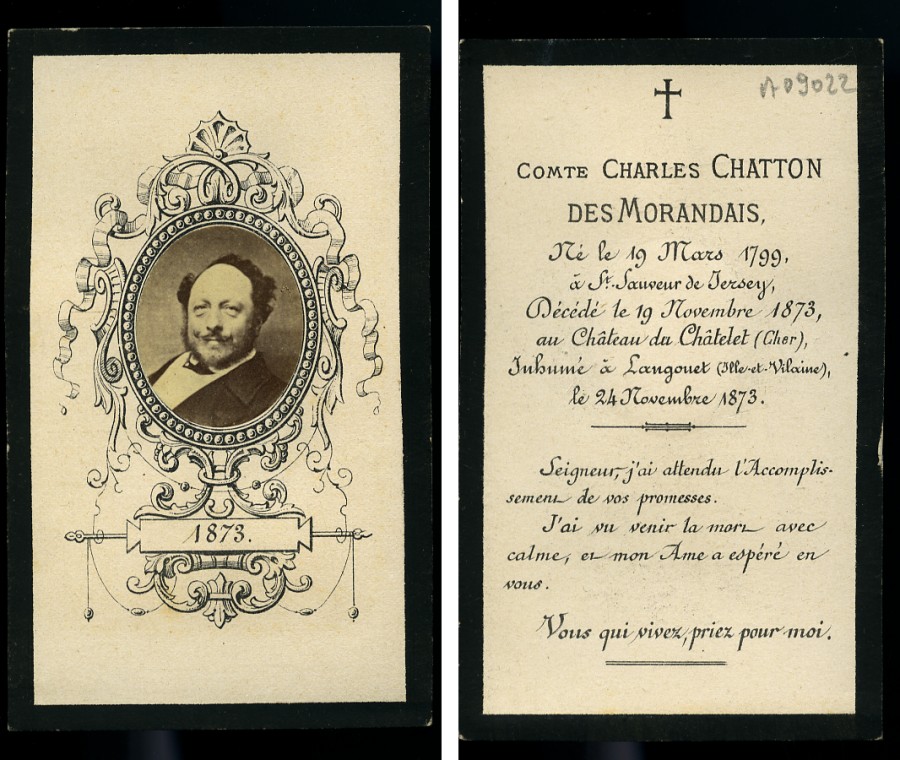 1873.
A09022
COMTE CHARLES CHATTON
DES MORANDAIS,
Né le 19 Mars 1799,
à St. Sauveur de Jersey,
Décédé le 19 Novembre 1873,
au Château du Châtelet (Cher),
Inhumé à Langouet (Ille-et-Vilaine),
le 24 Novembre 1873.
Seigneur, j'ai attendu l'Accomplis-
sement de vos promesses.
J'ai vu venir la mort avec
calme, et mon Ame a espéré en
vous.
Vous qui vivez, priez pour moi.